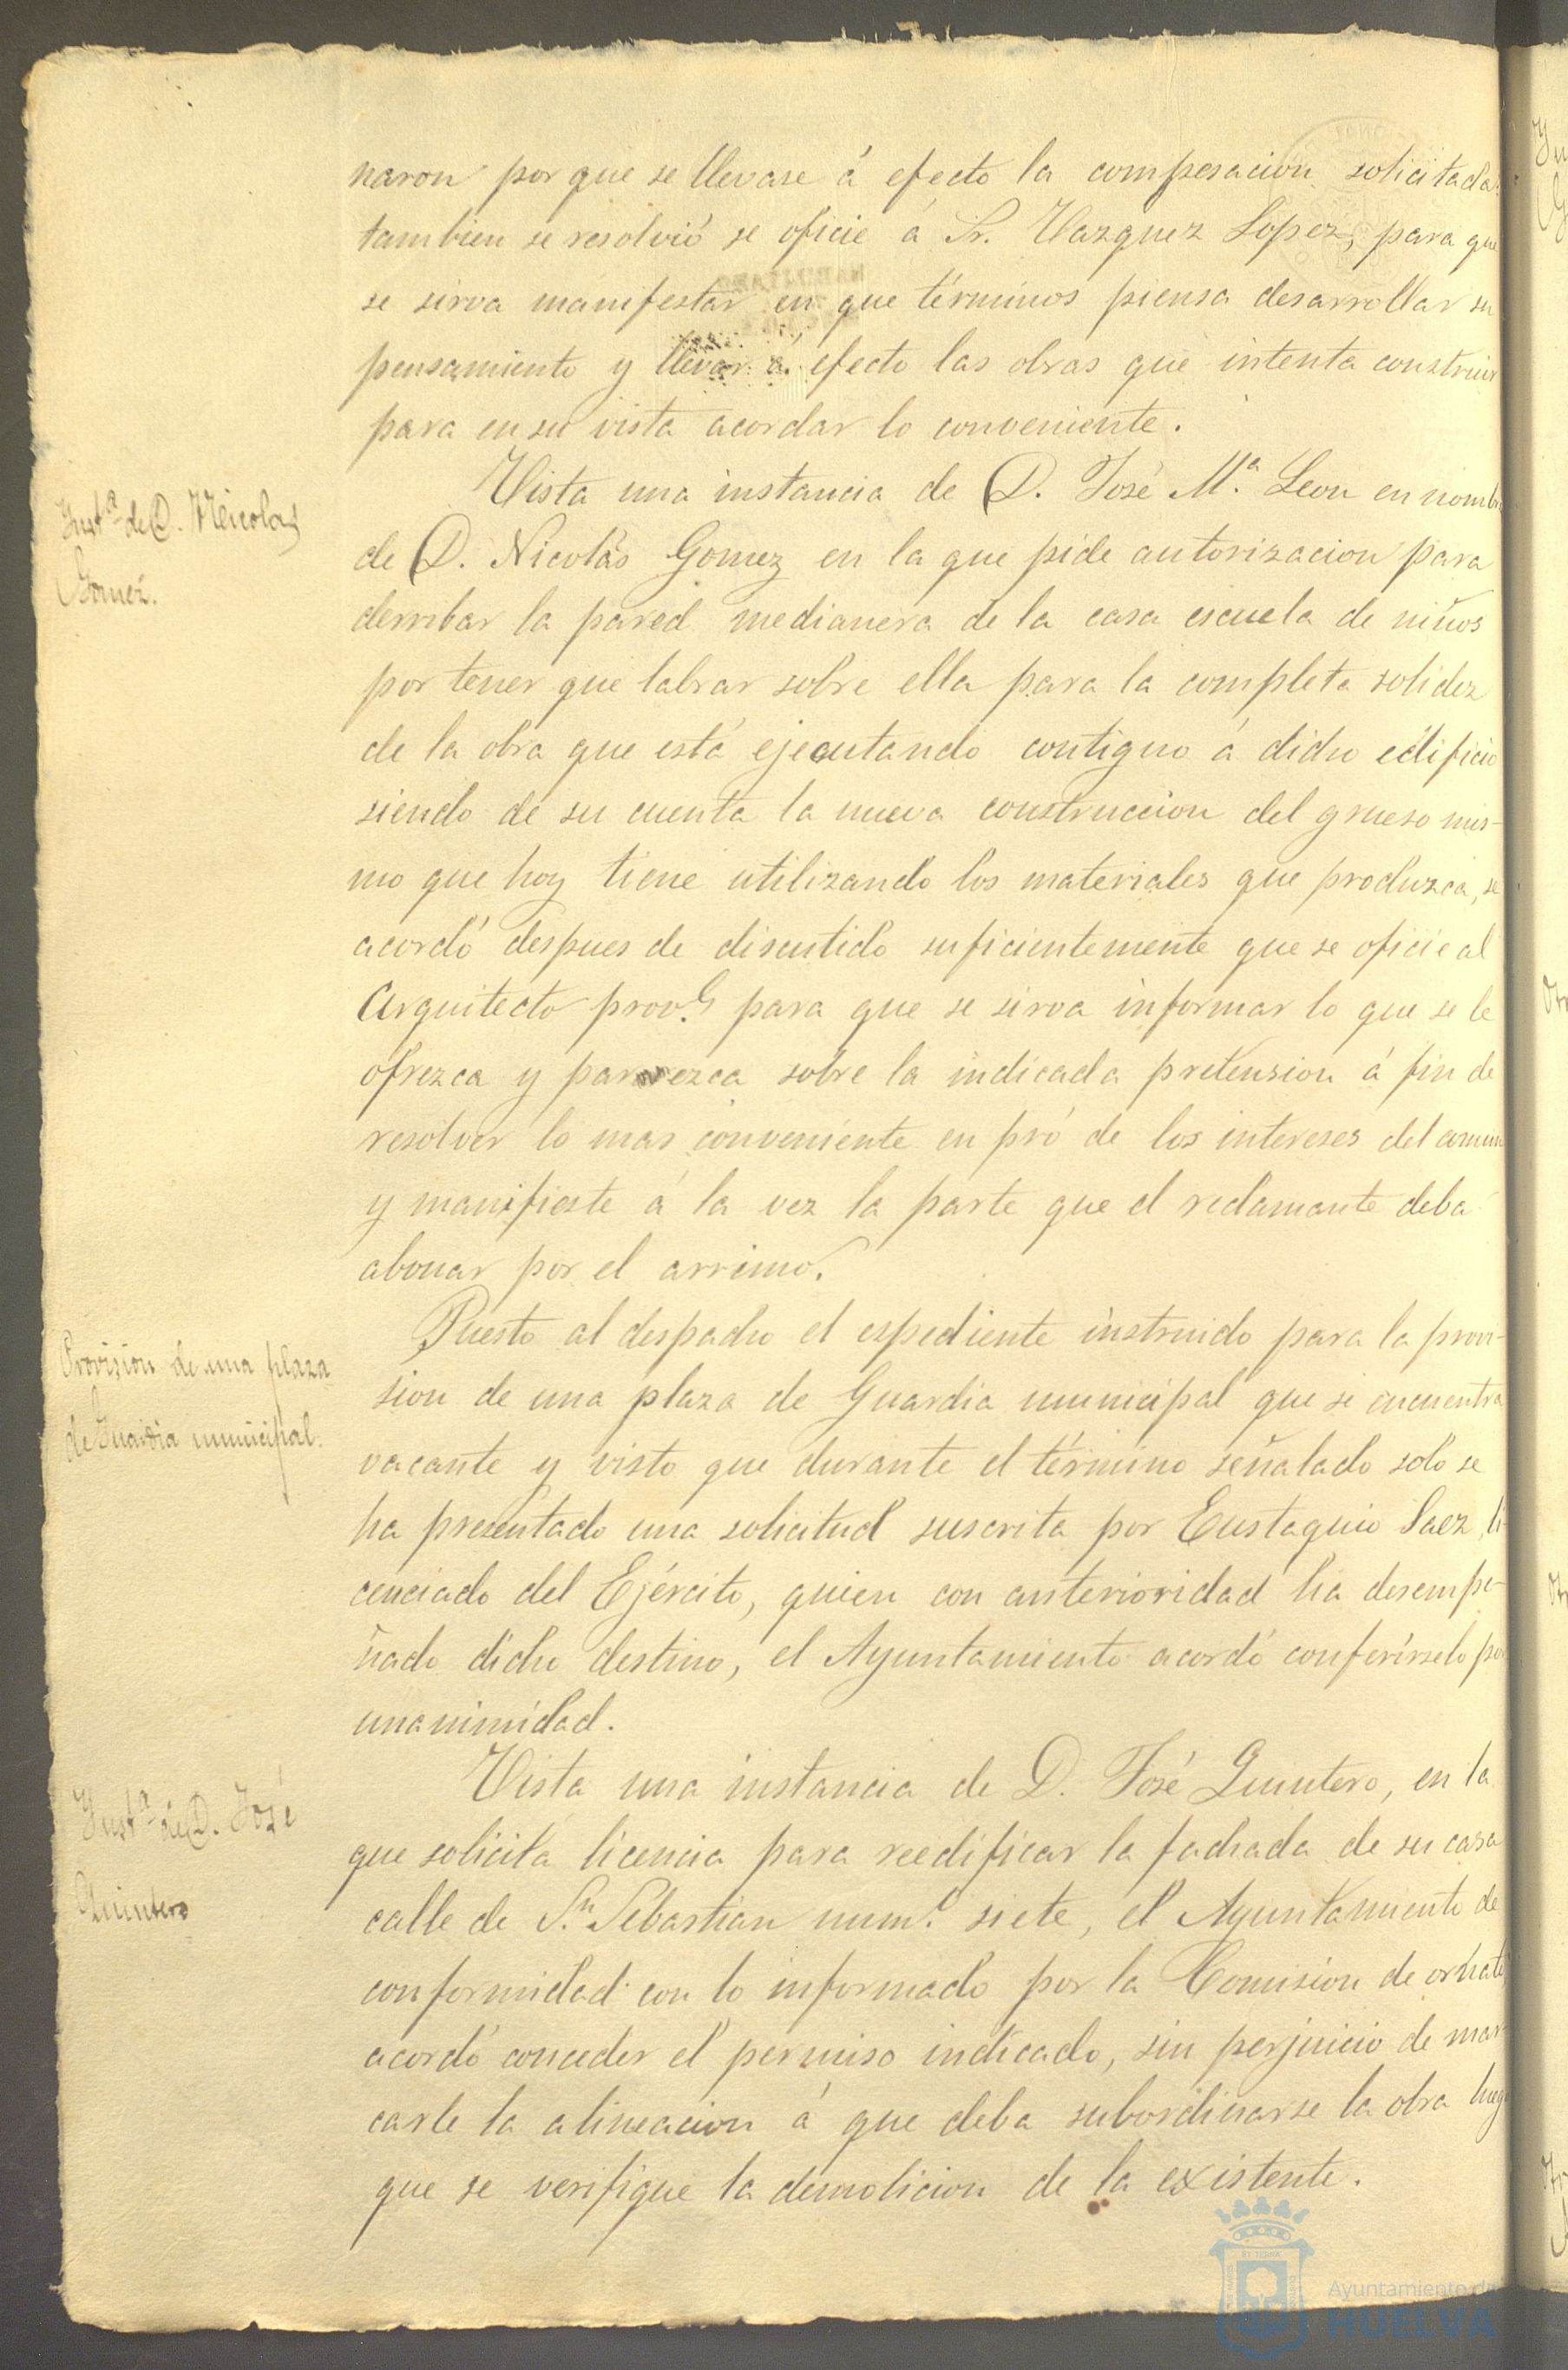 naron por que se llevase á efecto la compesacion solicitada:
tambien se resolvió se oficie á Sr. Vazquez Lopez, para que
se sirva manifestar en que términos piensa desarrollar su
pensamiento y llevar á efecto las obras que intenta construir
para en su vista acordar lo conveniente.
Inst.ª de D. Nicolas
Gomez.
Vista una instancia de D. José M.ª Leon en nombre
de D. Nicolás Gomez en la que pide autorizacion para
derribar la pared medianera de la casa escuela de niños
por tener que labrar sobre ella para la completa solidez
de la obra que está ejecutando contiguo á dicho edificio
siendo de su cuenta la nueva construccion del grueso mis-
mo que hoy tiene utilizando los materiales que produzca, se
acordó despues de discutido suficientemente que se oficie al
Arquitecto prov.l para que se sirva informar lo que se le
ofrezca y parezca sobre la indicada pretension á fin de
resolver lo mas conveniente en pró de los intereses del comun
y manifieste á la vez la parte que el reclamante deba
abonar por el arrimo.
Provision de una plaza
de Guardia municipal.
Puesto al despacho el espediente instruido para la provi-
sion de una plaza de Guardia municipal que se encuentra
vacante y visto que durante el término señalado solo se
ha presentado una solicitud suscrita por Eustaquio Saez, li-
cenciado del Ejército, quien con anterioridad ha desempe-
ñado dicho destino, el Ayuntamiento acordó conferírselo por
unanimidad.
Inst.ª de D. José
Quintero
Vista una instancia de D. José Quintero, en la
que solicita licencia para reedificar la fachada de su casa
calle de S.n Sebastian num.o siete, el Ayuntamiento de
conformidad con lo informado por la Comision de ornato
acordó conceder el permiso indicado, sin perjuicio de mar-
carle la alineacion á que deba subordinarse la obra luego
que se verifique la demolicion de la existente.
Ayuntamiento de
HUELVA